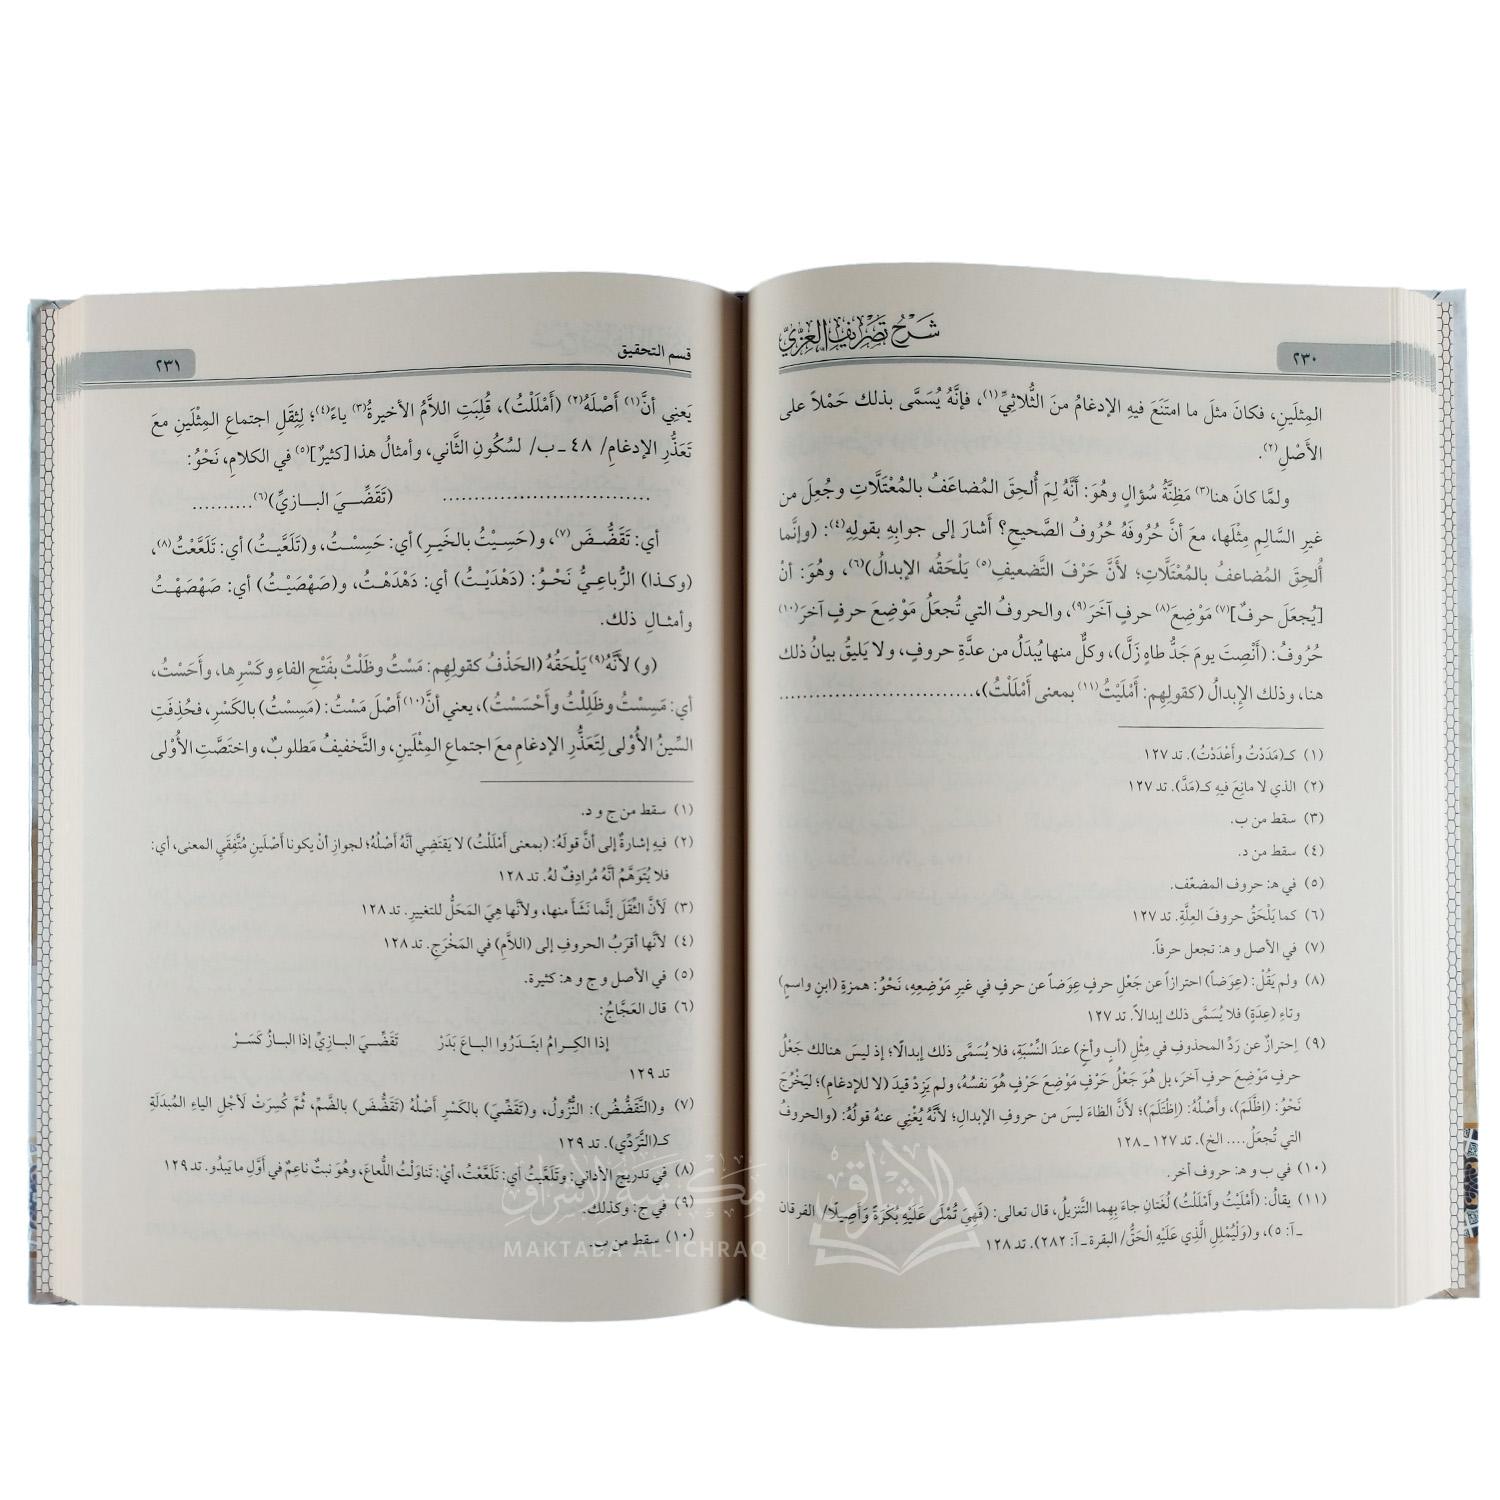 شَرْحُ تَصْرِيفِ العِزِّيِّ
٢٣٠
المِثلَينِ، فكانَ مثلَ ما امتَنَعَ فيهِ الإدغامُ منَ الثُّلاثِيِّ(١)، فإنَّهُ يُسَمَّى بذلك حَمْلاً على
الأَصْلِ(٢).
ولمَّا كانَ هنا(٣) مَظِنَّةُ سُؤالٍ وهُوَ: أنَّهُ لِمَ أُلحِقَ المُضاعَفُ بالمُعْتَلَّاتِ وجُعِلَ من
غيرِ السَّالِمِ مِثْلَها، معَ أنَّ حُرُوفَهُ حُرُوفُ الصَّحيحِ؟ أشارَ إلى جوابِهِ بقولِهِ(٤): (وإنَّما
أُلحِقَ المُضاعَفُ بالمُعْتَلَّاتِ؛ لأنَّ حَرْفَ التَّضعيفِ(٥) يَلْحَقُه الإبدالُ)(٦)، وهُوَ: أنْ
[يُجعَلَ حرفٌ](٧) مَوْضِعَ(٨) حرفٍ آخَرَ(٩)، والحروفُ التي تُجعَلُ مَوْضِعَ حرفٍ آخرَ(١٠)
حُرُوفُ: (أَنْصِتَ يومَ جَدُّ طاهٍ زَلَّ)، وكلٌّ منها يُبدَلُ من عدَّةِ حروفٍ، ولا يَليقُ بيانُ ذلك
هنا، وذلك الإبدالُ (كقولِهِم: أَمْلَيْتُ(١١) بمعنى أَمْلَلْتُ)،............................
(١) كـ(مَدَدْتُ وأَعْدَدْتُ). تد ١٢٧
(٢) الذي لا مانِعَ فيهِ كـ(مَدَّ). تد ١٢٧
(٣) سقط من ب.
(٤) سقط من د.
(٥) في هـ: حروف المضعّف.
(٦) كما يَلْحَقُ حروفَ العِلَّةِ. تد ١٢٧
(٧) في الأصل و هـ: تجعل حرفاً.
(٨) ولم يَقُلْ: (عِوَضاً) احترازاً عن جَعْلِ حرفٍ عِوَضاً عن حرفٍ في غيرِ مَوْضِعِهِ، نَحْوُ: همزةِ (ابنٍ واسمٍ)
وتاءِ (عِدَةٍ) فلا يُسَمَّى ذلك إبدالاً. تد ١٢٧
(٩) اِحترازٌ عن رَدِّ المحذوفِ في مِثْلِ (أبٍ وأخٍ) عندَ النِّسْبَةِ، فلا يُسَمَّى ذلك إبدالًا؛ إذ ليسَ هنالك جَعْلُ
حرفٍ مَوْضِعَ حرفٍ آخرَ، بل هُوَ جَعْلُ حَرْفٍ مَوْضِعَ حَرْفٍ هُوَ نفسُهُ، ولم يَزِدْ قيدَ (لا للإدغامِ)؛ ليَخْرُجَ
نَحْوُ: (اِظَّلَمَ)، وأصْلُهُ: (اِظْتَلَمَ)؛ لأنَّ الظاءَ ليسَ من حروفِ الإبدالِ؛ لأنَّهُ يُغْنِي عنهُ قولُهُ: (والحروفُ
التي تُجعَلُ.... الخ). تد ١٢٧ ـ ١٢٨
(١٠) في ب و هـ: حروف أخر.
(١١) يقالُ: (أَمْلَيْتُ وأَمْلَلْتُ) لُغتانِ جاءَ بِهِما التَّنزيلُ، قال تعالى: (فَهِيَ تُمْلَى عَلَيْهِ بُكْرَةً وَأَصِيلًا/ الفرقان
ـ آ: ٥)، و(وَلْيُمْلِلِ الَّذِي عَلَيْهِ الْحَقُّ/ البقرة ـ آ: ٢٨٢). تد ١٢٨
قسم التحقيق
٢٣١
يَعنِي أنَّ(١) أَصْلَهُ(٢) (أَمْلَلْتُ)، قُلِبَتِ اللاَّمُ الأخيرةُ(٣) ياءً(٤)؛ لِثِقَلِ اجتماعِ المِثْلَينِ مع
تَعَذُّرِ الإدغامِ/ ٤٨ ـ ب/ لسُكُونِ الثَّاني، وأمثالُ هذا [كثيرٌ](٥) في الكلامِ، نَحْوُ:
............................... (تَقَضِّـيَ البـازيِّ)(٦)..........
أي: تَقَضُّـضَ(٧)، و(حَسِيْتُ بالخَيرِ) أي: حَسِسْتُ، و(تَلَعَّيتُ) أي: تَلَعَّعْتُ(٨)،
(وكـذا) الرُّباعِيُّ نَحْوُ: (دَهْدَيْتُ) أي: دَهْدَهْتُ، و(صَهْصَيْتُ) أي: صَهْصَهْتُ
وأمثـالِ ذلك.
(و) لأنَّهُ(٩) يَلْحَقُهُ (الحَذْفُ كقولِهِم: مَسْتُ وظَلْتُ بفَتْحِ الفاءِ وكَسْرِها، وأَحَسْتُ،
أي: مَسِسْتُ وظَلِلْتُ وأَحْسَسْتُ)، يعني أنَّ(١٠) أصْلَ مَسْتُ: (مَسِسْتُ) بالكَسْرِ، فحُذِفَتِ
السِّينُ الأُولى لتَعَذُّرِ الإدغامِ معَ اجتماعِ المِثْلَينِ، والتَّخفيفُ مَطلوبٌ، واختَصَّتِ الأُولى
(١) سقط من ج و د.
(٢) فيهِ إشارةٌ إلى أنَّ قولَهُ: (بمعنى أَمْلَلْتُ) لا يَقتَضِي أنَّهُ أَصْلُهُ؛ لجوازِ أنْ يكونا أَصْلَينِ مُتَّفِقَي المعنى، أي:
فلا يُتَوَهَّمُ أنَّهُ مُرادِفٌ لهُ. تد ١٢٨
(٣) لأنَّ الثِّقَلَ إنَّما نَشَأَ منها، ولأنَّها هِيَ المَحَلُّ للتغييرِ. تد ١٢٨
(٤) لأنَّها أقرَبُ الحروفِ إلى (اللاَّمِ) في المَخْرَجِ. تد ١٢٨
(٥) في الأصل و ج و هـ: كثيرة.
(٦) قال العَجَّاجُ:
إذا الكِـرامُ ابتَـدَرُوا البـاعَ بَدَرْ تَقَضِّـيَ البـازيِّ إذا البـازُ كَسَـرْ
تد ١٢٩
(٧) و(التَّقَضُّضُ): النُّزُولُ، و(تَقَضِّيَ) بالكَسْرِ أصْلُهُ (تَقَضُّضَ) بالضَّمِّ، ثُمَّ كُسِرَتْ لأجْلِ الياءِ المُبدَلَةِ
كـ(التَّرَدِّي). تد ١٢٩
(٨) في تدريج الأداني: وتَلَعَّيتُ أي: تَلَعَّعْتُ، أيْ: تَناوَلْتُ اللُّعاعَ، وهُوَ نبتٌ ناعِمٌ في أوَّلِ ما يَبدُو. تد ١٢٩
(٩) في ج: وكذلك.
(١٠) سقط من ب.
مكتبة الإشراق
MAKTABA AL-ICHRAQ
الإشراق